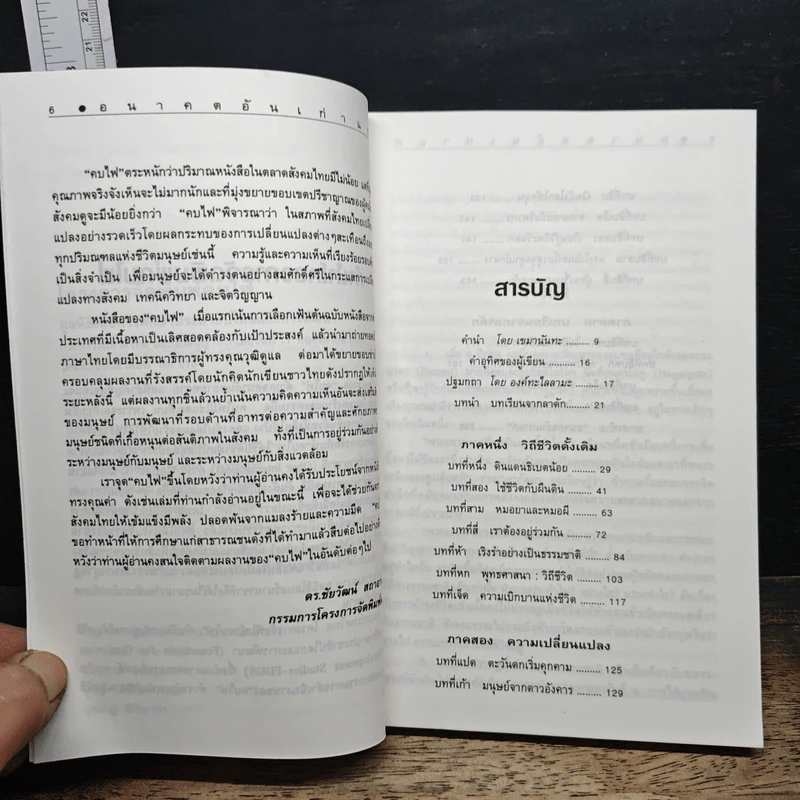 22
21
6 ● อ น า ค ต อั น เ ก่ า แ
"คบไฟ" ตระหนักว่าปริมาณหนังสือในตลาดสังคมไทยมีไม่น้อย
คุณภาพจริงจังเห็นจะไม่มากนักและที่มุ่งขยายขอบเขตปรีชาญาณของผู้
สังคมดูจะมีน้อยยิ่งกว่า "คบไฟ" พิจารณาว่า ในสภาพที่สังคมไทย
แปลงอย่างรวดเร็วโดยผลกระทบของการเปลี่ยนแปลงต่างๆสะเทือนถึง
ทุกปริมณฑลแห่งชีวิตมนุษย์เช่นนี้ ความรู้และความเห็นที่เรียงร้อยรอบ
เป็นสิ่งจำเป็น เพื่อมนุษย์จะได้ดำรงตนอย่างสมศักดิ์ศรีในกระแสการ
แปลงทางสังคม เทคนิควิทยา และจิตวิญญาน
หนังสือของ "คบไฟ" เมื่อแรกเน้นการเลือกเฟ้นต้นฉบับหนังสือจาก
ประเทศที่มีเนื้อหาเป็นเลิศสอดคล้องกับเป้าประสงค์ แล้วนำมาถ่ายทอด
ภาษาไทยโดยมีบรรณาธิการผู้ทรงคุณวุฒิดูแล ต่อมาได้ขยายขอบข่าย
ครอบคลุมผลงานที่รังสรรค์โดยนักคิดนักเขียนชาวไทยดังปรากฏให้
ระยะหลังนี้ แต่ผลงานทุกชิ้นล้วนย้ำเน้นความคิดความเห็นอันจะส่งเสริม
ของมนุษย์ การพัฒนาที่รอบด้านที่อาทรต่อความสำคัญและศักยภาพ
มนุษย์ชนิดที่เกื้อหนุนต่อสันติภาพในสังคม ทั้งที่เป็นการอยู่ร่วมกันอย่าง
ระหว่างมนุษย์กับมนุษย์ และระหว่างมนุษย์กับสิ่งแวดล้อม
เราจุด "คบไฟ" ขึ้นโดยหวังว่าท่านผู้อ่านคงได้รับประโยชน์จากหนัง
ทรงคุณค่า ดังเช่นเล่มที่ท่านกำลังอ่านอยู่ในขณะนี้ เพื่อจะได้ช่วยกัน
สังคมไทยให้เข้มแข็งมีพลัง ปลอดพ้นจากแมลงร้ายและความมืด "คบ
ขอทำหน้าที่ให้การศึกษาแก่สาธารณชนดังที่ได้ทำมาแล้วสืบต่อไปอย่าง
หวังว่าท่านผู้อ่านคงสนใจติดตามผลงานของ "คบไฟ" ในอันดับต่อๆไป
ดร.ชัยวัฒน์ สถาอา
กรรมการโครงการจัดพิมพ์
สารบัญ
คำนำ โดย เขมานันทะ ......... 9
คำอุทิศของผู้เขียน ......... 16
ปฐมกถา โดย องค์ทะไลลามะ ......... 17
บทนำ บทเรียนจากลาดัก ......... 21
ภาคหนึ่ง วิถีชีวิตดั้งเดิม
บทที่หนึ่ง ดินแดนธิเบตน้อย ......... 29
บทที่สอง ใช้ชีวิตกับผืนดิน ......... 41
บทที่สาม หมอยาและหมอผี ......... 63
บทที่สี่ เราต้องอยู่ร่วมกัน ......... 72
บทที่ห้า เริงร่าอย่างเป็นธรรมชาติ ......... 84
บทที่หก พุทธศาสนา : วิถีชีวิต ......... 103
บทที่เจ็ด ความเบิกบานแห่งชีวิต ......... 117
ภาคสอง ความเปลี่ยนแปลง
บทที่แปด ตะวันตกเริ่มคุกคาม ......... 125
บทที่เก้า มนุษย์จากดาวอังคาร ......... 129